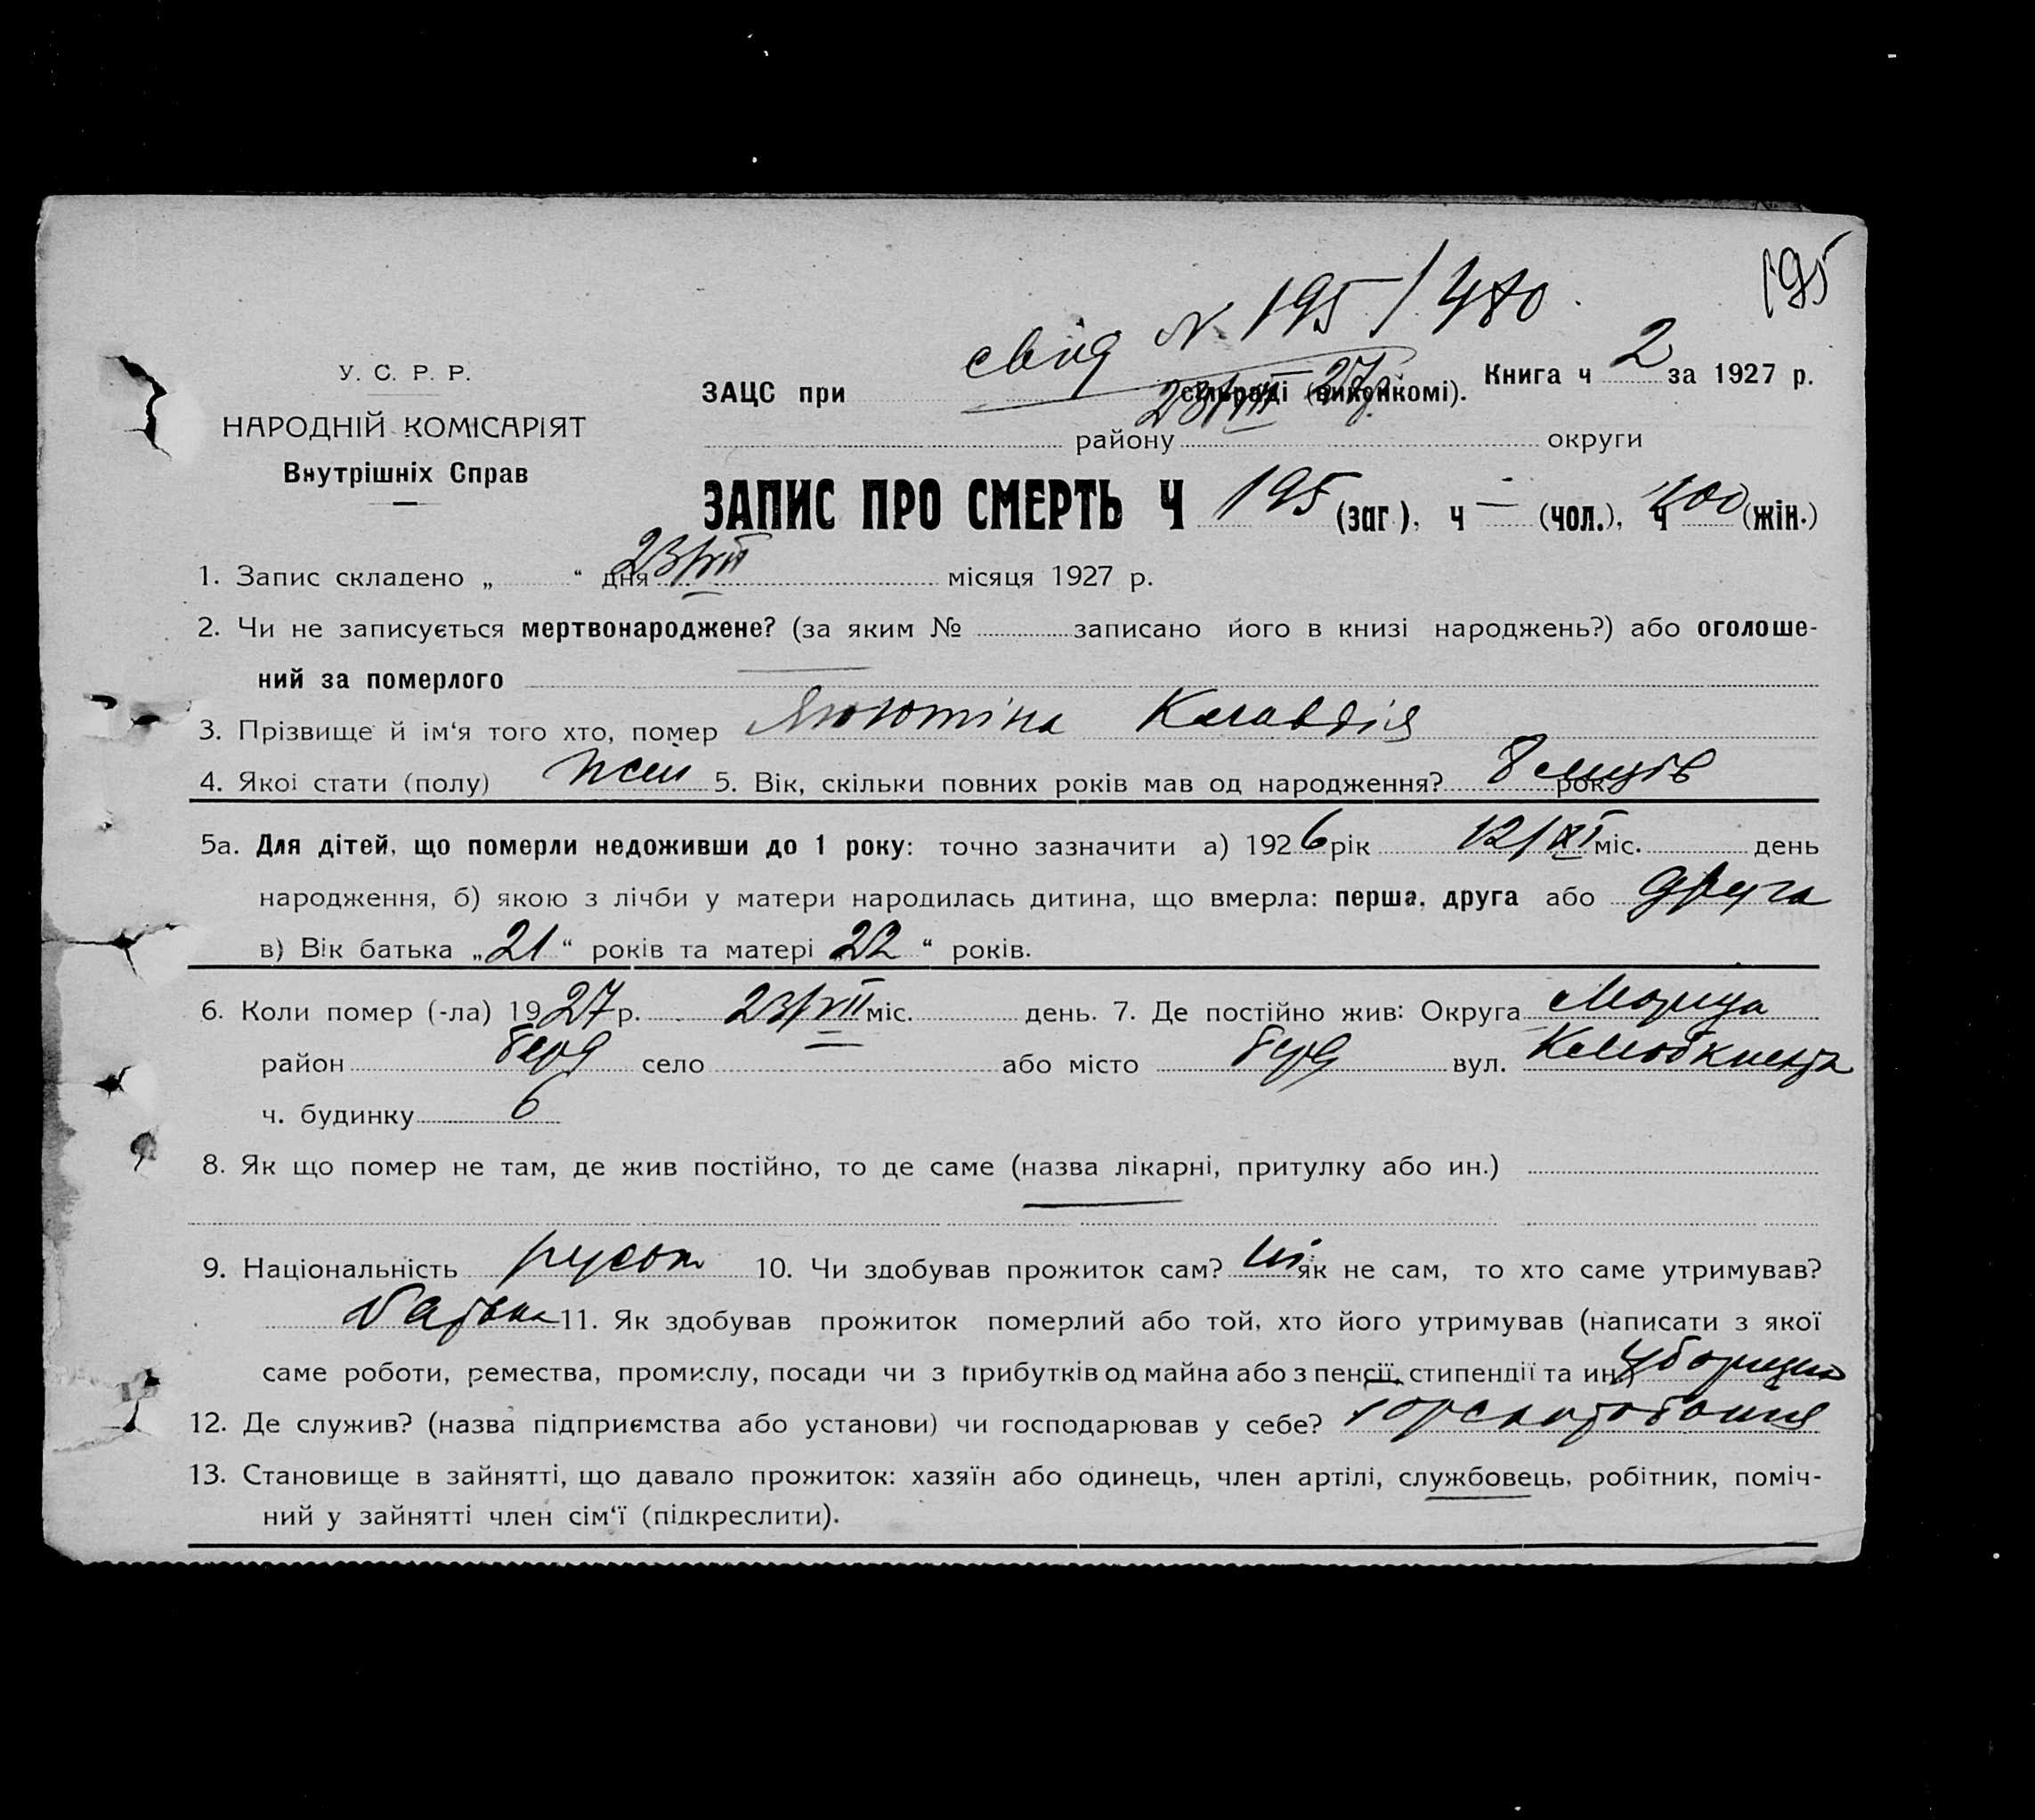 195
свид N 195/480.
У. С. Р. Р.
НАРОДНІЙ КОМІСАРІЯТ
Внутрішніх Справ
ЗАЦС при сільраді (виконкомі). Книга ч 2 за 1927 р.
23/VII 27р.
району округи
ЗАПИС ПРО СМЕРТЬ Ч 195 (заг.), ч — (чол.), ч 100 (жін.)
1. Запис складено „ “ дня 23/VII місяця 1927 р.
2. Чи не записується мертвонароджене? (за яким № записано його в книзі народжень?) або оголоше-
ний за померлого
3. Прізвище й ім‘я того хто, помер Клавдія
4. Якої стати (полу) жін 5. Вік, скільки повних років мав од народження? 8 місців рок.
5а. Для дітей, що померли недоживши до 1 року: точно зазначити а) 1926 рік 12/XI міс. день
народження, б) якою з лічби у матери народилась дитина, що вмерла: перша, друга або друга
в) Вік батька „21“ років та матері „22“ років.
6. Коли помер (-ла) 1927 р. 23/VII міс. день. 7. Де постійно жив: Округа Маріуп
район Берд село або місто Берд вул.
ч. будинку 6
8. Як що помер не там, де жив постійно, то де саме (назва лікарні, притулку або ин.)
9. Національність руськ 10. Чи здобував прожиток сам? Ні як не сам, то хто саме утримував?
батьки 11. Як здобував прожиток померлий або той, хто його утримував (написати з якої
саме роботи, ремества, промислу, посади чи з прибутків од майна або з пенсії, стипендії та ин.)
12. Де служив? (назва підприємства або установи) чи господарював у себе?
13. Становище в зайнятті, що давало прожиток: хазяїн або одинець, член артілі, службовець, робітник, поміч-
ний у зайнятті член сім‘ї (підкреслити).